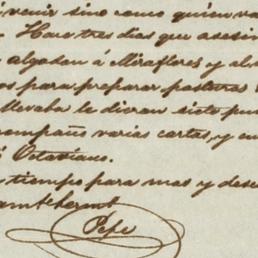 venir sino como quien va
Hace tres dias que asesin
algodon á Miraflores y al
os para preparar posturas
llevaba le dieran siete pu
compaño varias cartas, y en
Octaviano.
tiempo para mas y dese
Pepe